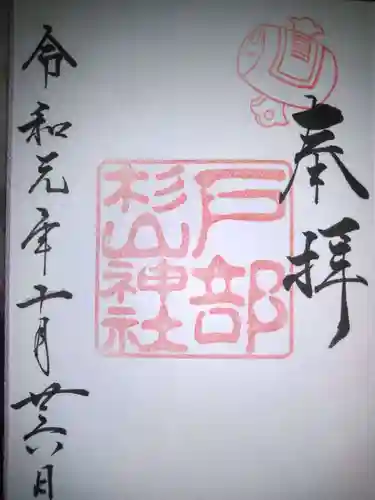 奉拝
戸部
杉山神社
令和元年十月廿六日